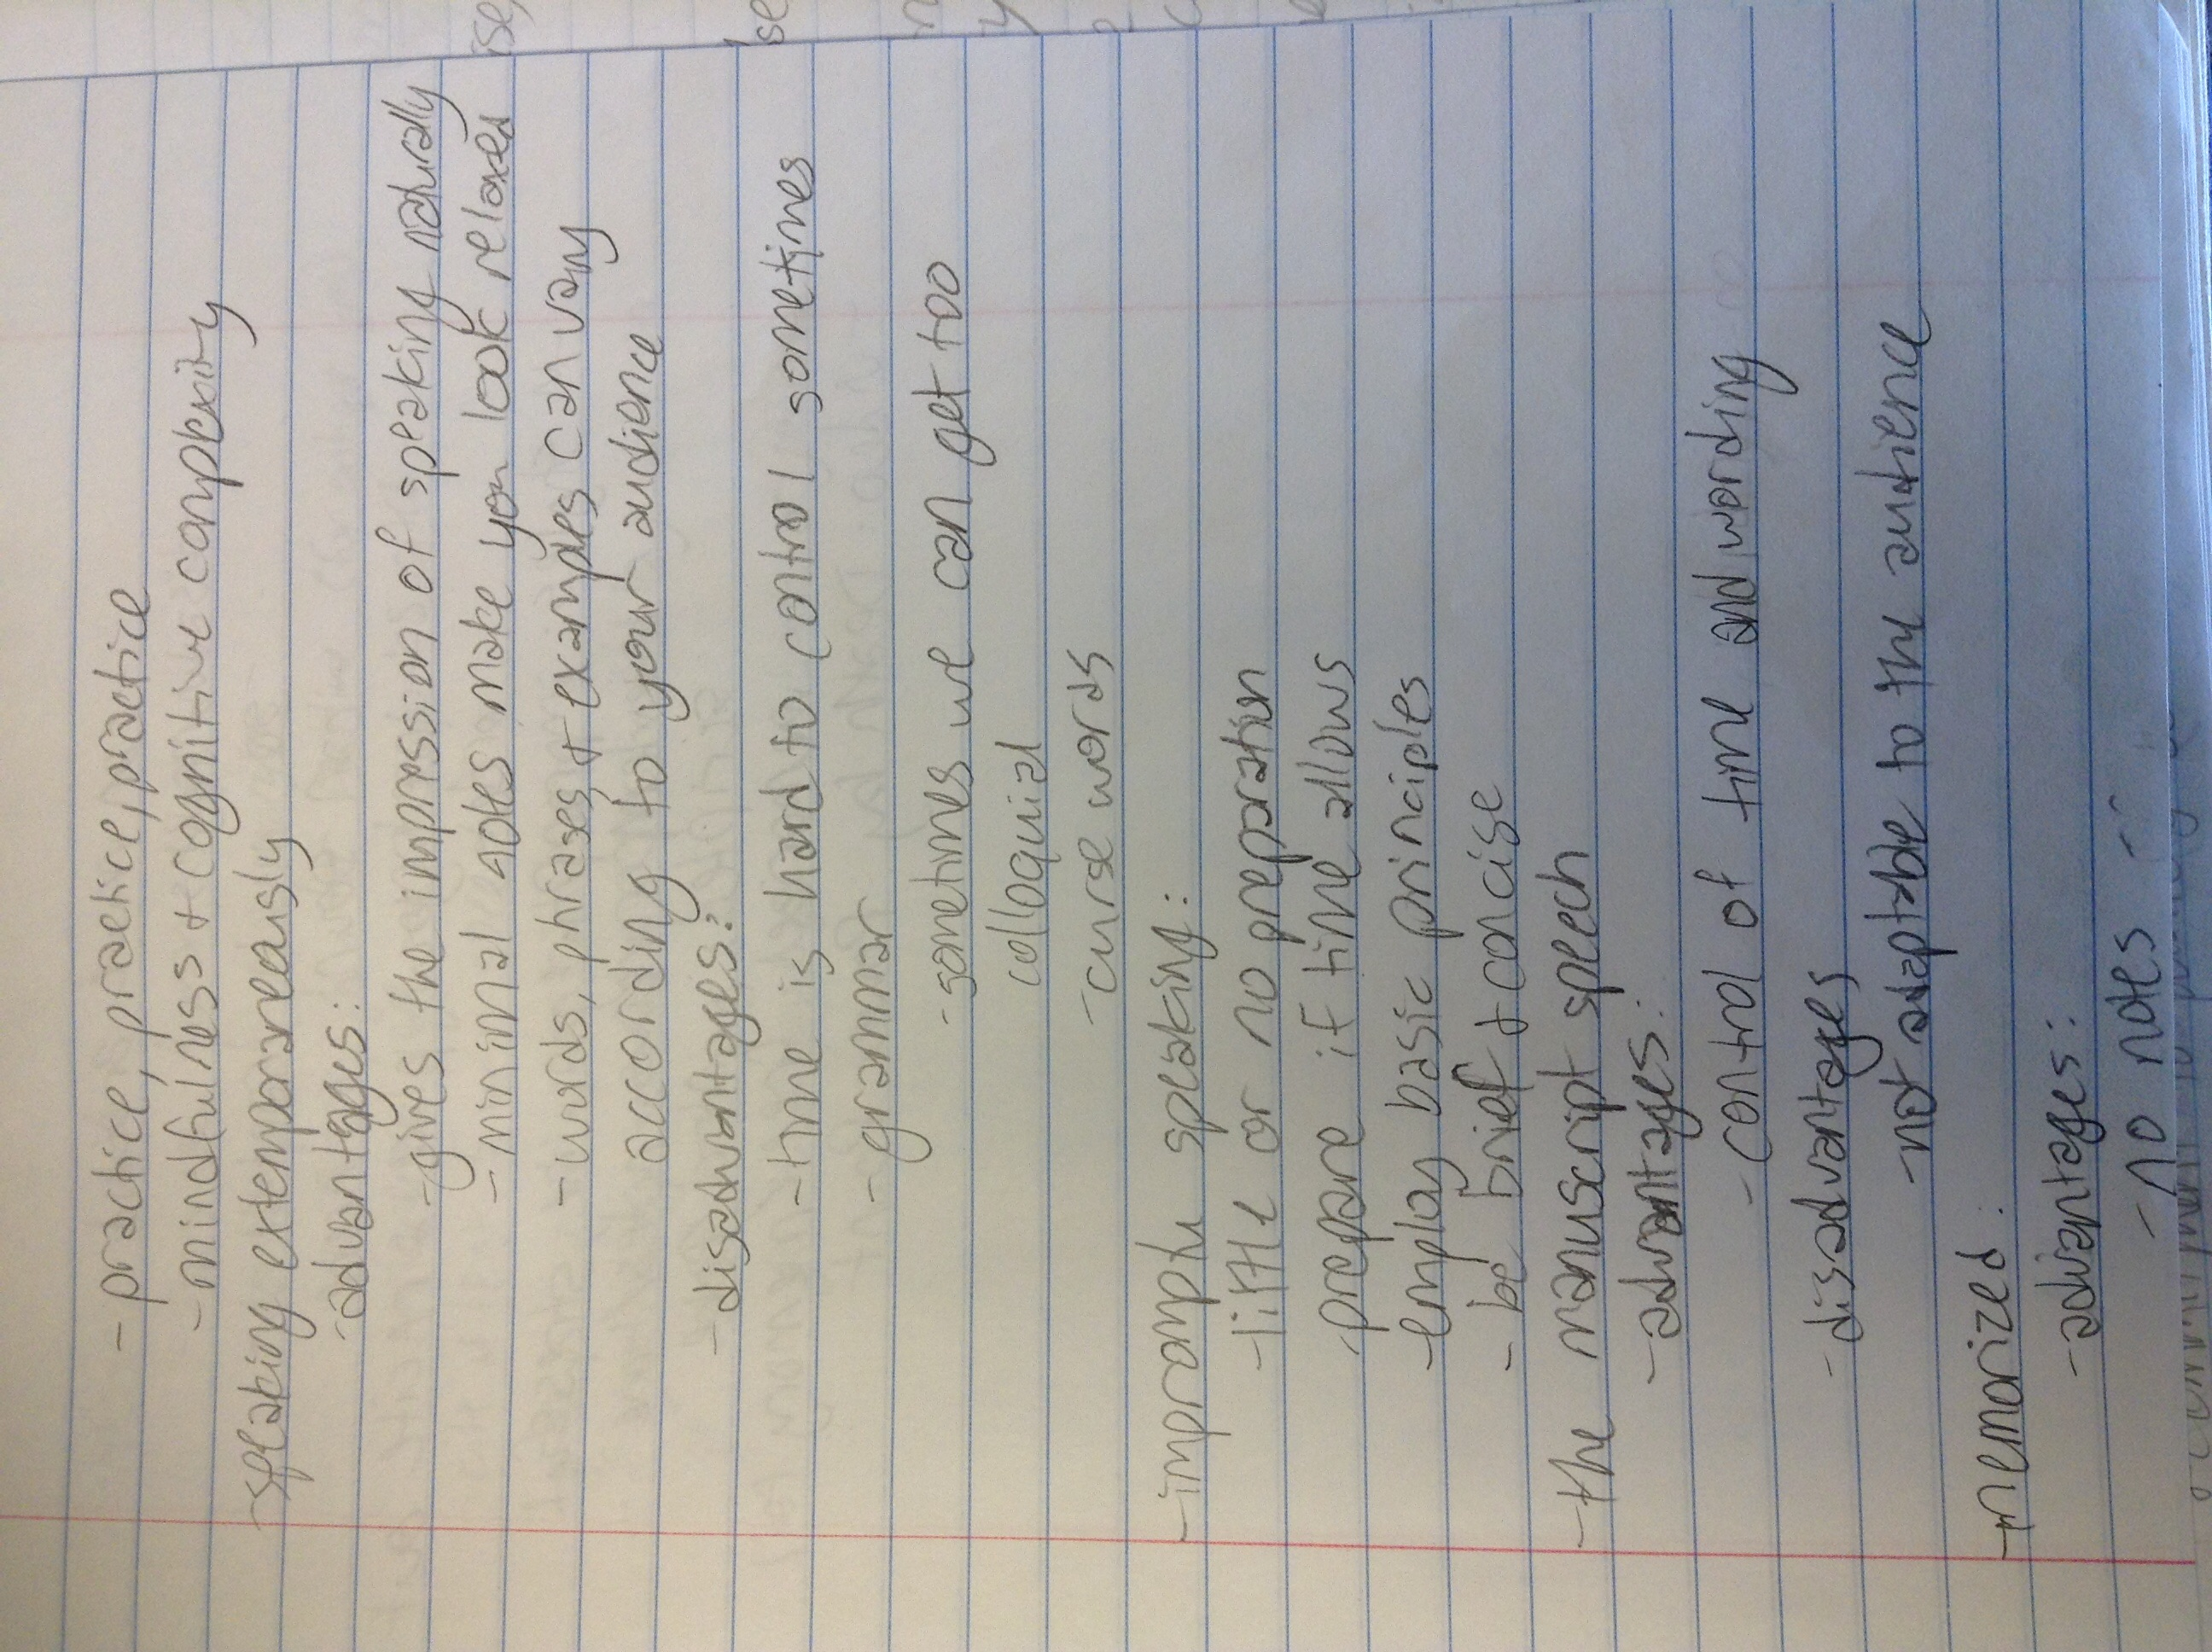 - practice, practice, practice
- mindfulness + cognitive complexity
- speaking extemporaneously
- advantages:
- gives the impression of speaking naturally
- minimal notes make you look relaxed
- words, phrases, + examples can vary
according to your audience
- disadvantages:
- time is hard to control sometimes
- grammar
- sometimes we can get too
colloquial
- curse words
- impromptu speaking:
- little or no prepration
- prepare if time allows
- employ basic principles
- be brief + concise
- the manuscript speech
- advantages:
- control of time and wording
- disadvantages
- not adaptable to the audience
- memorized:
- advantages:
- no notes